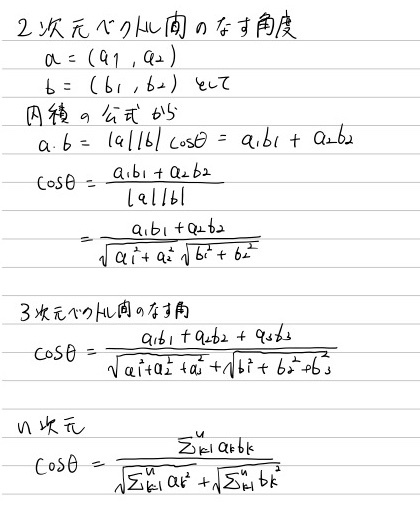 2次元ベクトル間のなす角度
a = (a1, a2)
b = (b1, b2) として
内積の公式から
a・b = |a||b| cosθ = a1b1 + a2b2
cosθ = (a1b1 + a2b2) / (|a||b|)
= (a1b1 + a2b2) / (√(a1² + a2²) √(b1² + b2²))
3次元ベクトル間のなす角
cosθ = (a1b1 + a2b2 + a3b3) / (√(a1² + a2² + a3²) + √(b1² + b2² + b3²))
n次元
cosθ = (Σ_{k=1}^n akbk) / (√(Σ_{k=1}^n ak²) + √(Σ_{k=1}^n bk²))